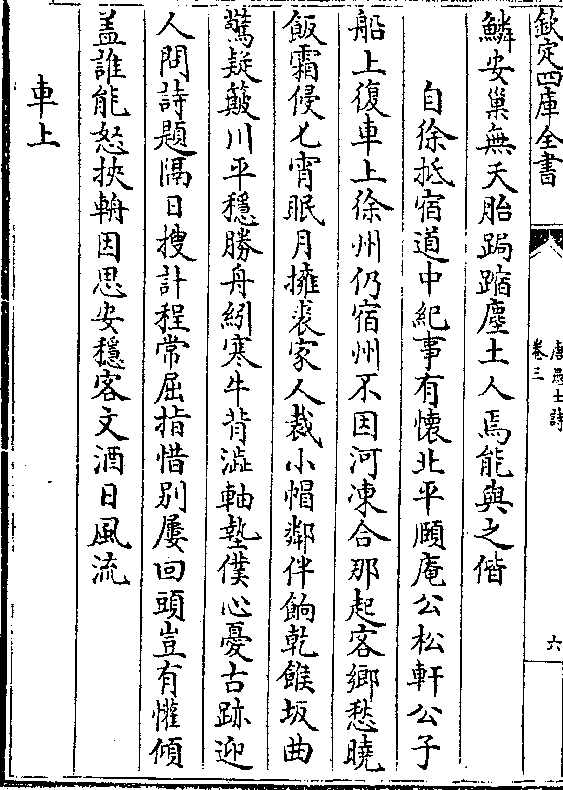 欽定四庫全書
唐愚士詩
卷三
六
鱗安巢無天胎跼蹐塵土人焉能與之偕
自徐抵宿道中紀事有懷北平頤庵公松軒公子
船上復車上徐州仍宿州不因河凍合那起客鄉愁曉
飯霜侵七宵眠月擁裘家人裁小帽鄰伴餉乾餱坂曲
驚疑簸川平穩勝舟紖寒牛背澁軸墊僕心憂古跡迎
人問詩題隔日搜計程常屈指惜別屢回頭豈有懽傾
盖誰能怒挾輈因思安穩客文酒日風流
車上